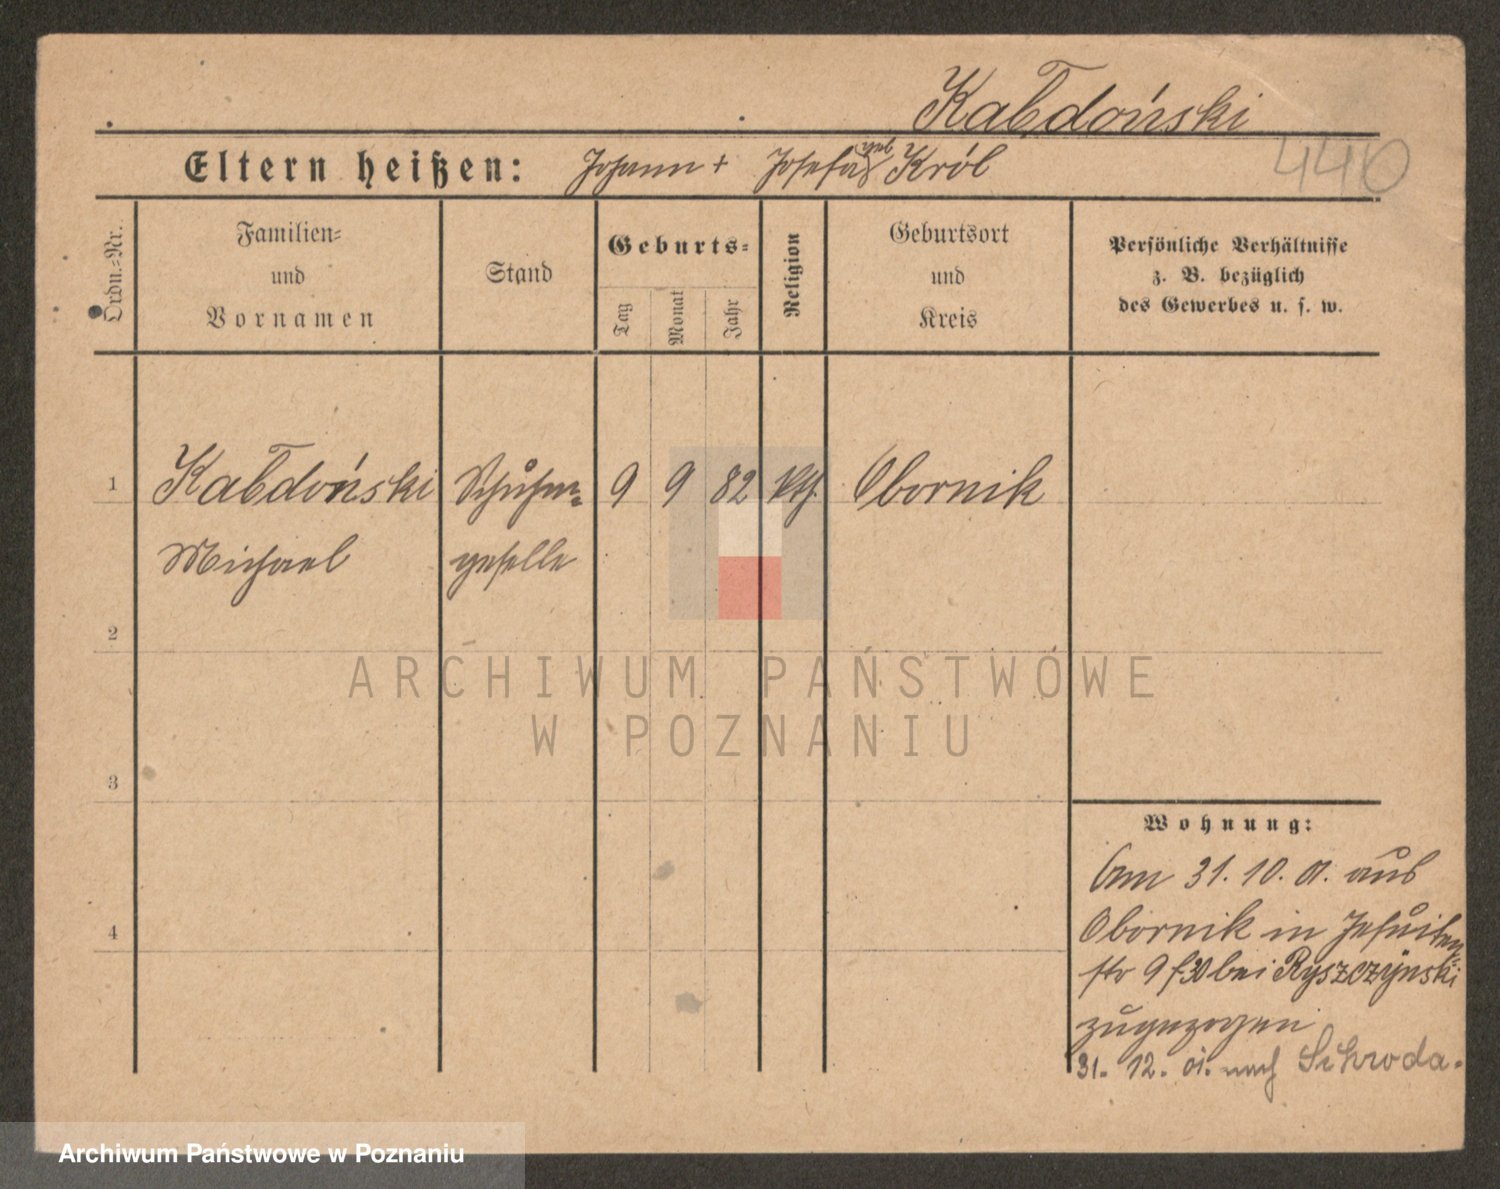 Kabdoński
Eltern heißen: Johann + Josefa geb Król
440
Ordn.=Nr.
Familien=
und
Vornamen
Stand
Geburts=
Tag
Monat
Jahr
Religion
Geburtsort
und
Kreis
Persönliche Verhältnisse
z. B. bezüglich
des Gewerbes u. s. w.
1 Kabdoński Schuhm= 9 9 82 kth. Obornik
Michael geselle
2
3
4
Wohnung:
Am 31. 10. 01. aus
Obornik in Jesuiten=
str 9 bei Ryszczynski
zugezogen
31. 12. 01. nach Schroda.
ARCHIWUM PAŃSTWOWE
W POZNANIU
Archiwum Państwowe w Poznaniu